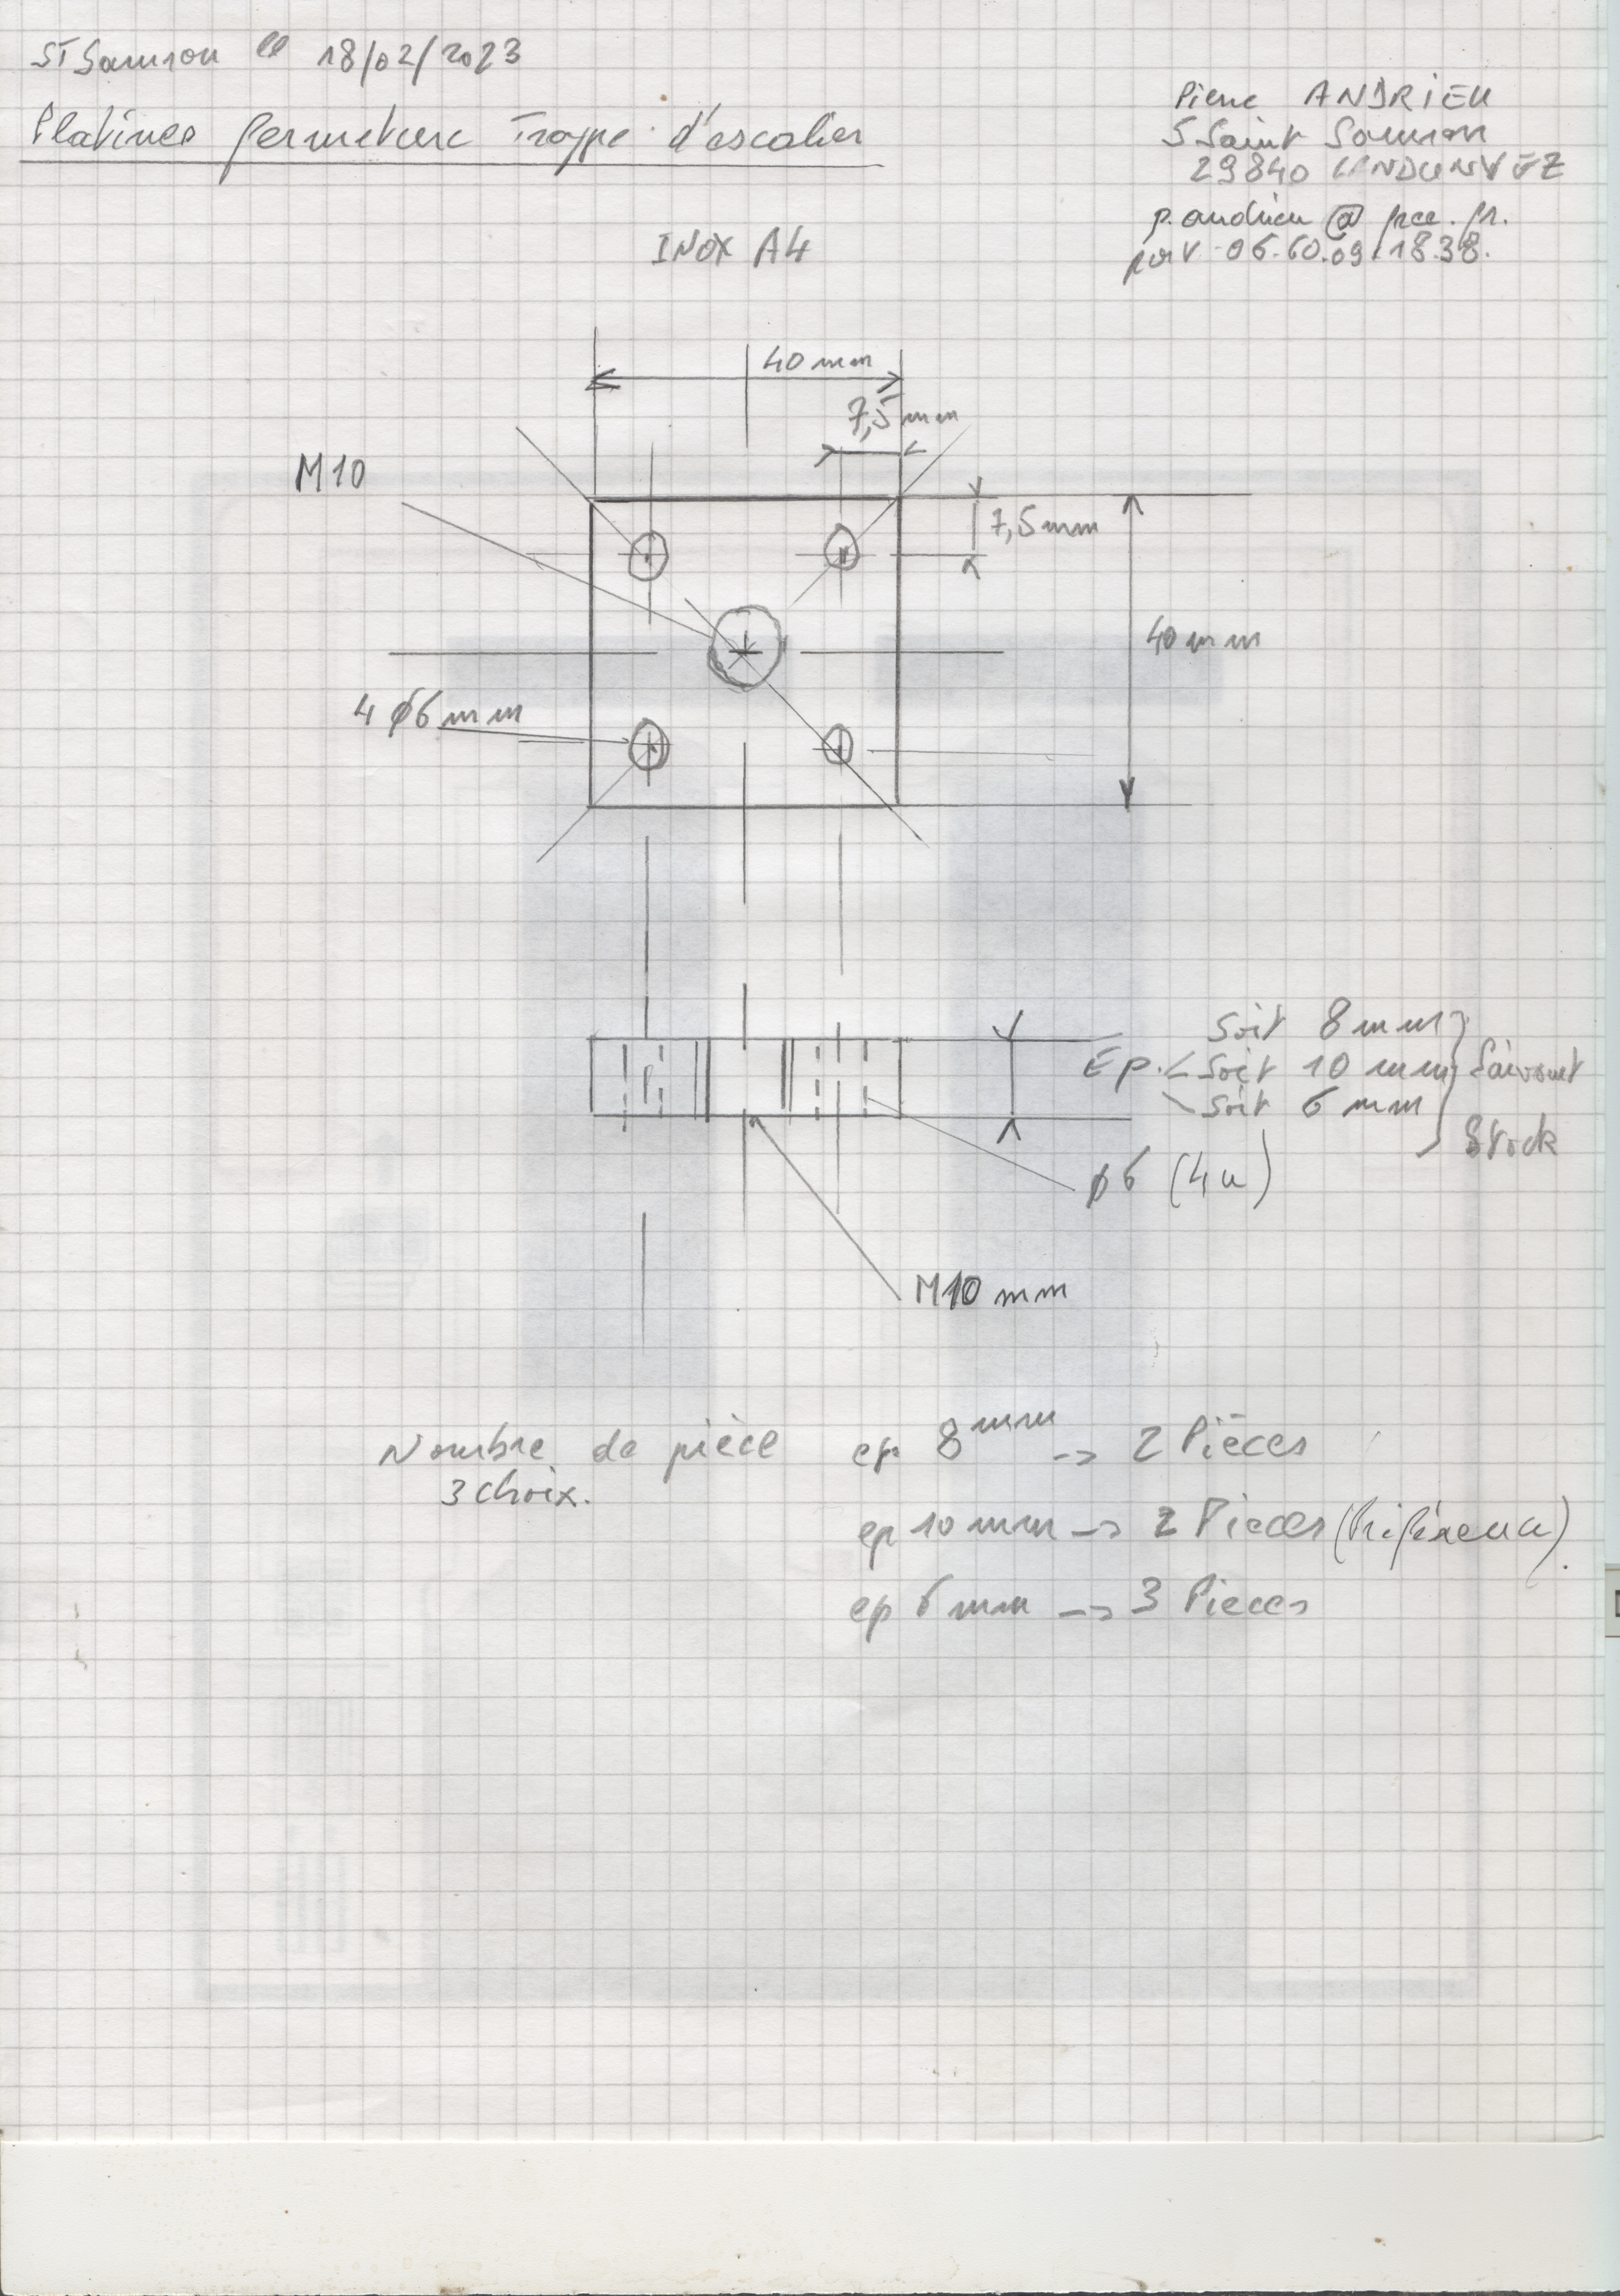 St Samson le 18/02/2023
Platines fermeture Trappe d'escalier
Pierre ANDRIEU
5 Saint Samson
29840 LANDUNVEZ
p.andrieu@free.fr.
port 06.60.09.18.38.
INOX A4
40 mm
7,5 mm
M10
7,5 mm
40 mm
4 ϕ6 mm
Soit 8 mm
Ep. Soit 10 mm Suivant
Soit 6 mm
Stock
ϕ6 (4u)
M10 mm
Nombre de pièce ep 8 mm -> 2 Pièces
3 choix.
ep 10 mm -> 2 Pieces (Préférence).
ep 6 mm -> 3 Pieces